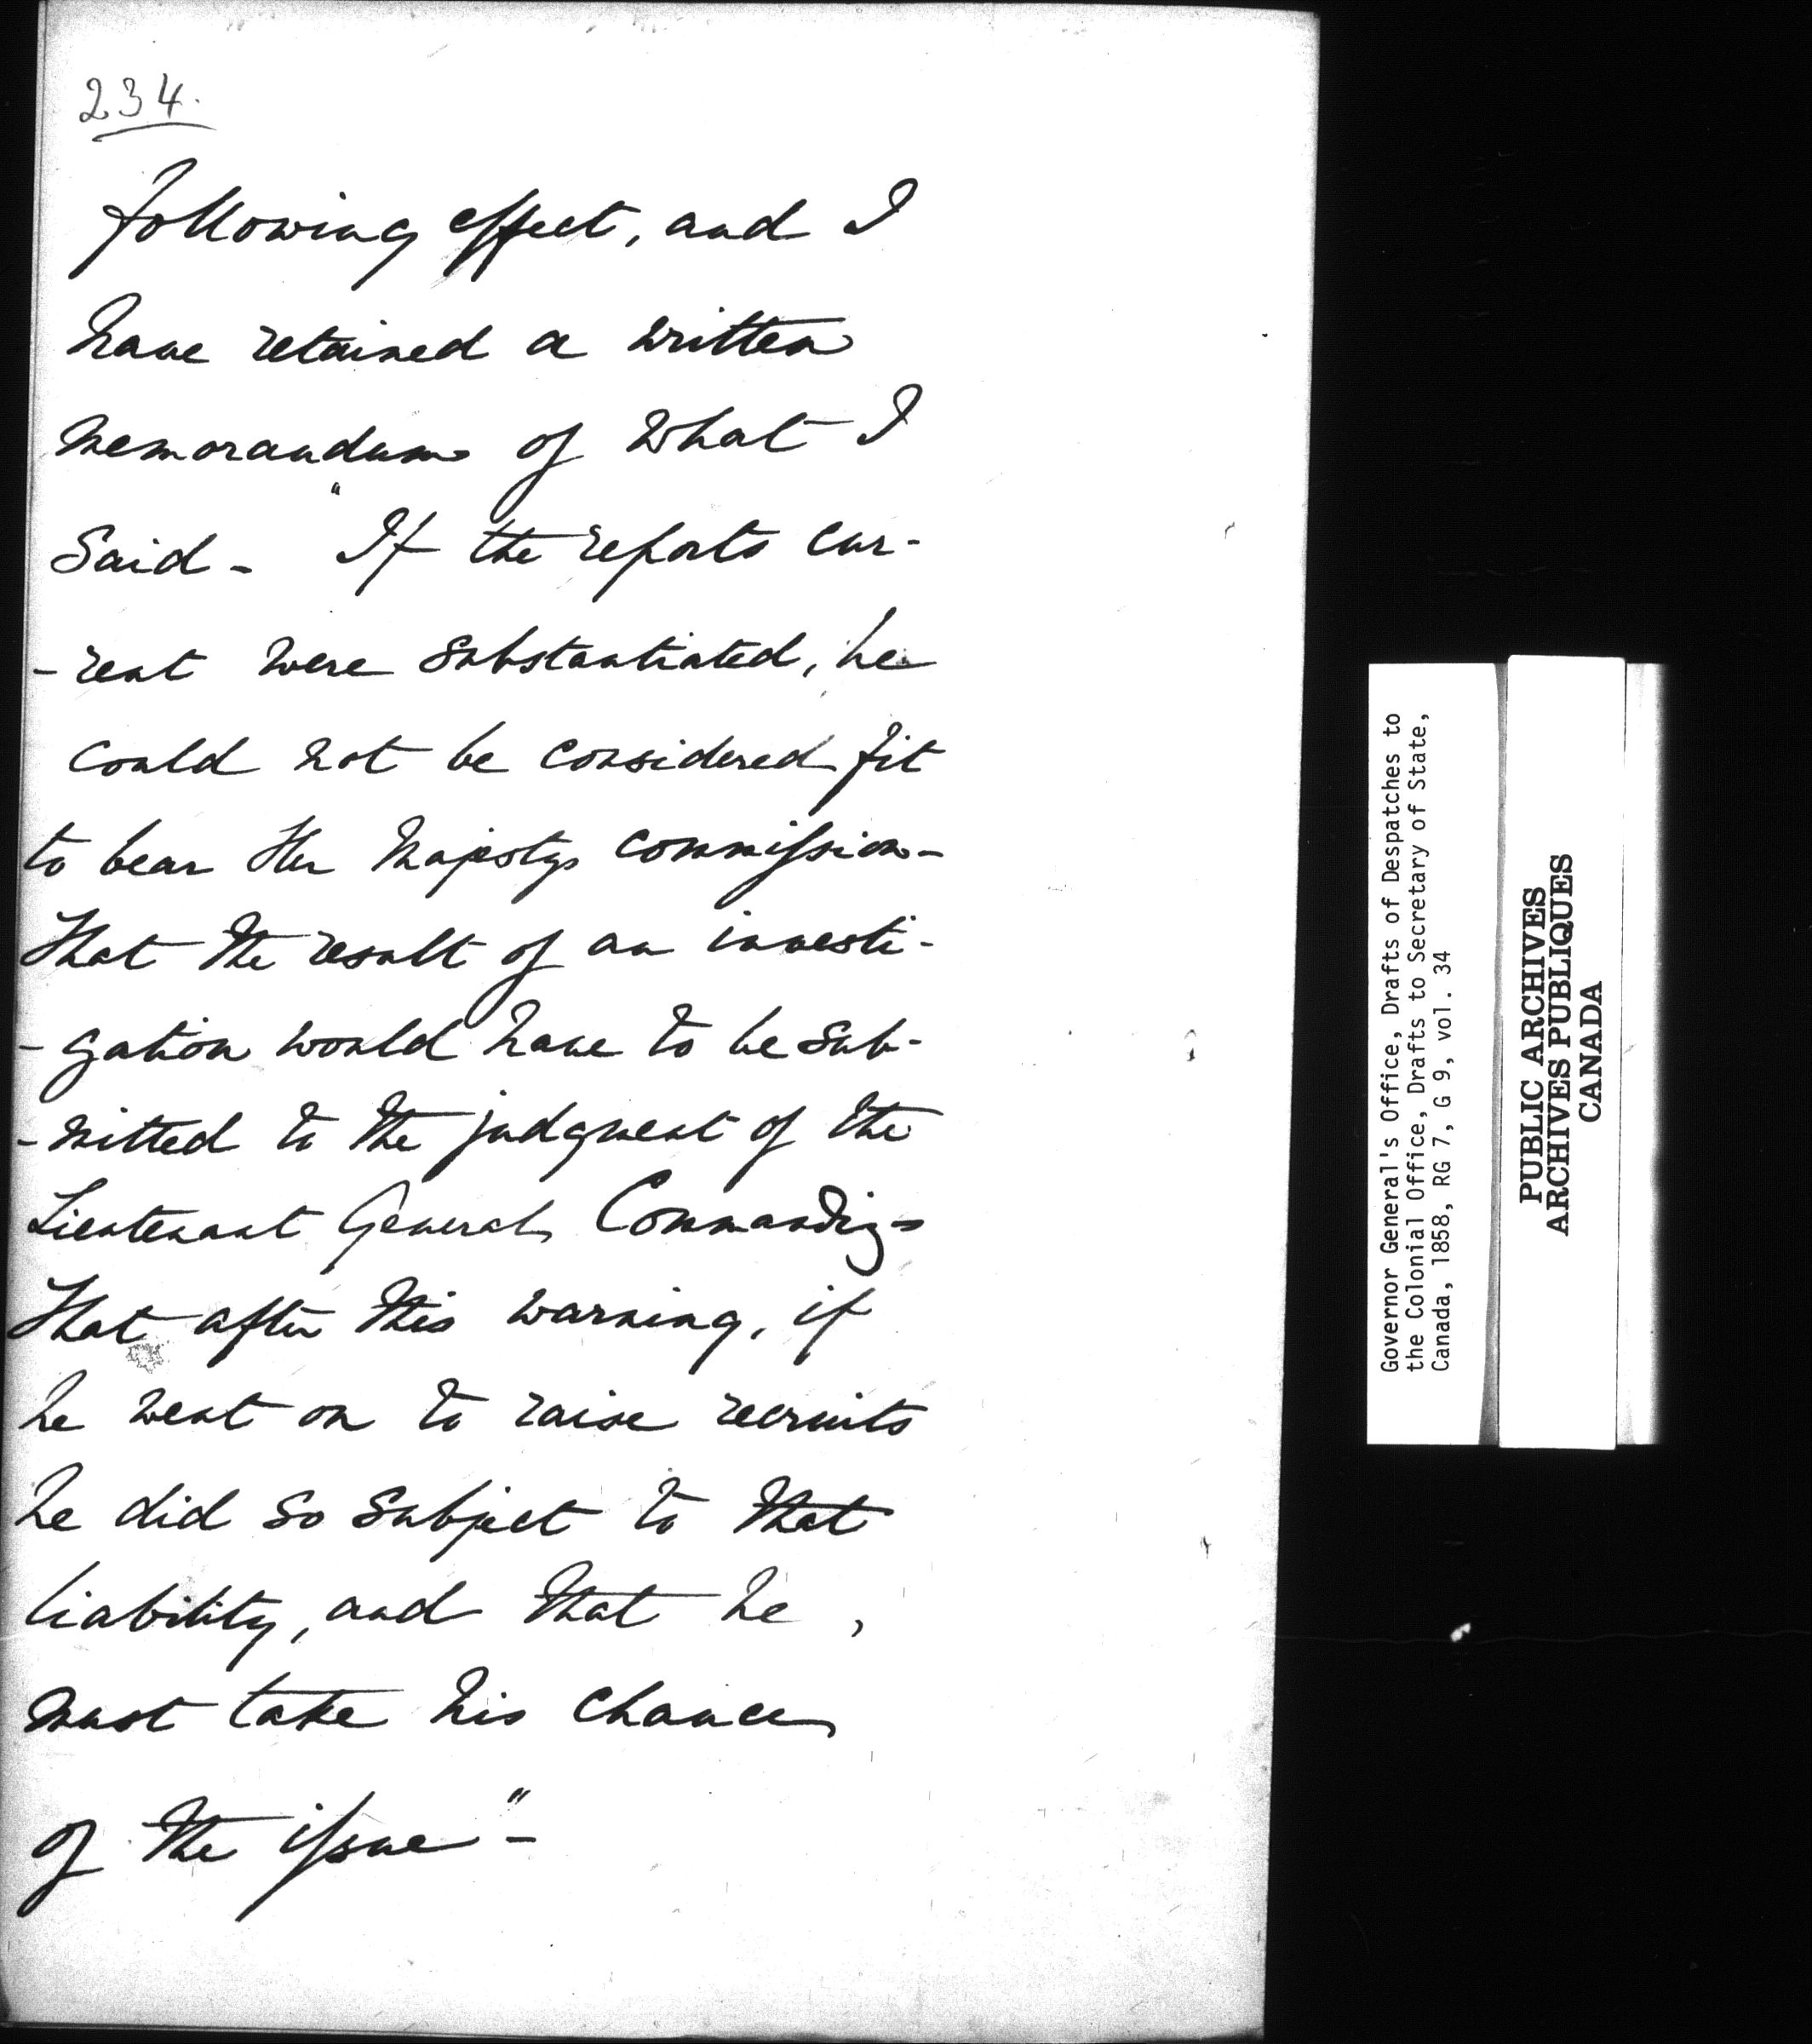 234.
following effect, and I
have retained a written
memorandum of what I
said - "If the reports cur-
-rent were substantiated, he
could not be considered fit
to bear Her Majestys commission -
that the result of an investi-
-gation would have to be sub-
-mitted to the judgment of the
Lieutenant General Commanding -
that after this warning, if
he went on to raise recruits
he did so subject to that
liability, and that he,
must take his chance
of the issue" -
Governor General's Office, Drafts of Despatches to
the Colonial Office, Drafts to Secretary of State,
Canada, 1858, RG 7, G 9, vol. 34
PUBLIC ARCHIVES
ARCHIVES PUBLIQUES
CANADA